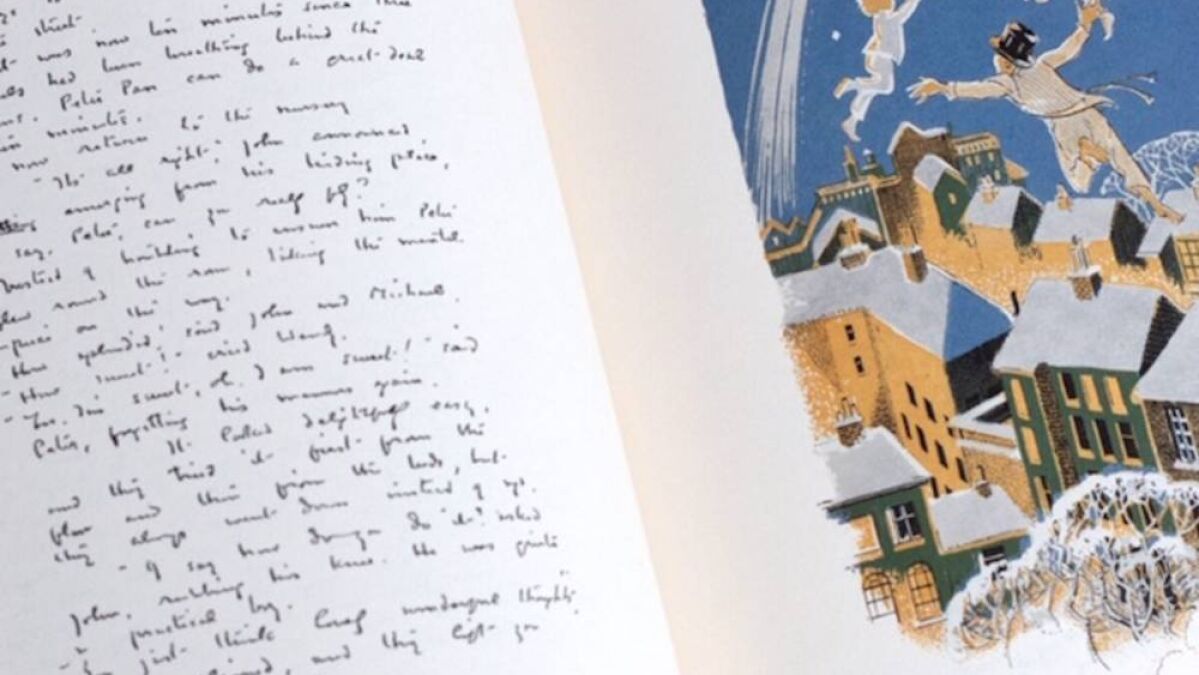 street.
was now ten minutes since three
had been breathing behind the
Peter Pan can do a great deal
minutes.
now return to the nursery
- It's all right, John announced,
emerging from his hiding place,
say, Peter, can you really fly?
Instead of troubling to answer him Peter
flew round the room, taking the mantel
-piece on the way.
- How splendid! said John and Michael.
- How sweet! cried Wendy.
- Yes, I'm sweet, oh, I am sweet! said
Peter, forgetting his manners again.
It looked delightfully easy,
and they tried it first from the
floor and then from the beds, but
they always went down instead of up.
- I say how do you do it? asked
John, rubbing his knee. He was quite
a practical boy.
- You just think lovely wonderful thoughts,
and they lift you